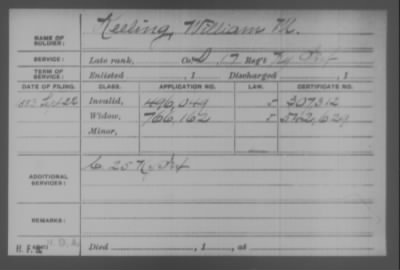 NAME OF SOLDIER: Keeling, William M.
SERVICE: Late rank, Co. D, 17 Reg't Ky Inf
TERM OF SERVICE: Enlisted , 1 Discharged , 1
DATE OF FILING. CLASS. APPLICATION NO. LAW. CERTIFICATE NO.
Invalid, 496,049 307,312
Widow, 766,162 562,629
Minor,
ADDITIONAL SERVICES: C. 25 Ky Inf
REMARKS:
Died , 1 , at